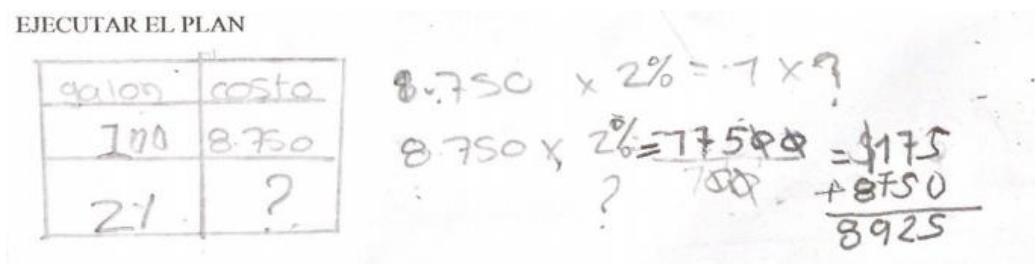 EJECUTAR EL PLAN
galon costo
1 8.750
2% ?
8.750 x 2% = 1 x ?
8.750 x 2% = 17500 = $175
? 100 + 8750
8925